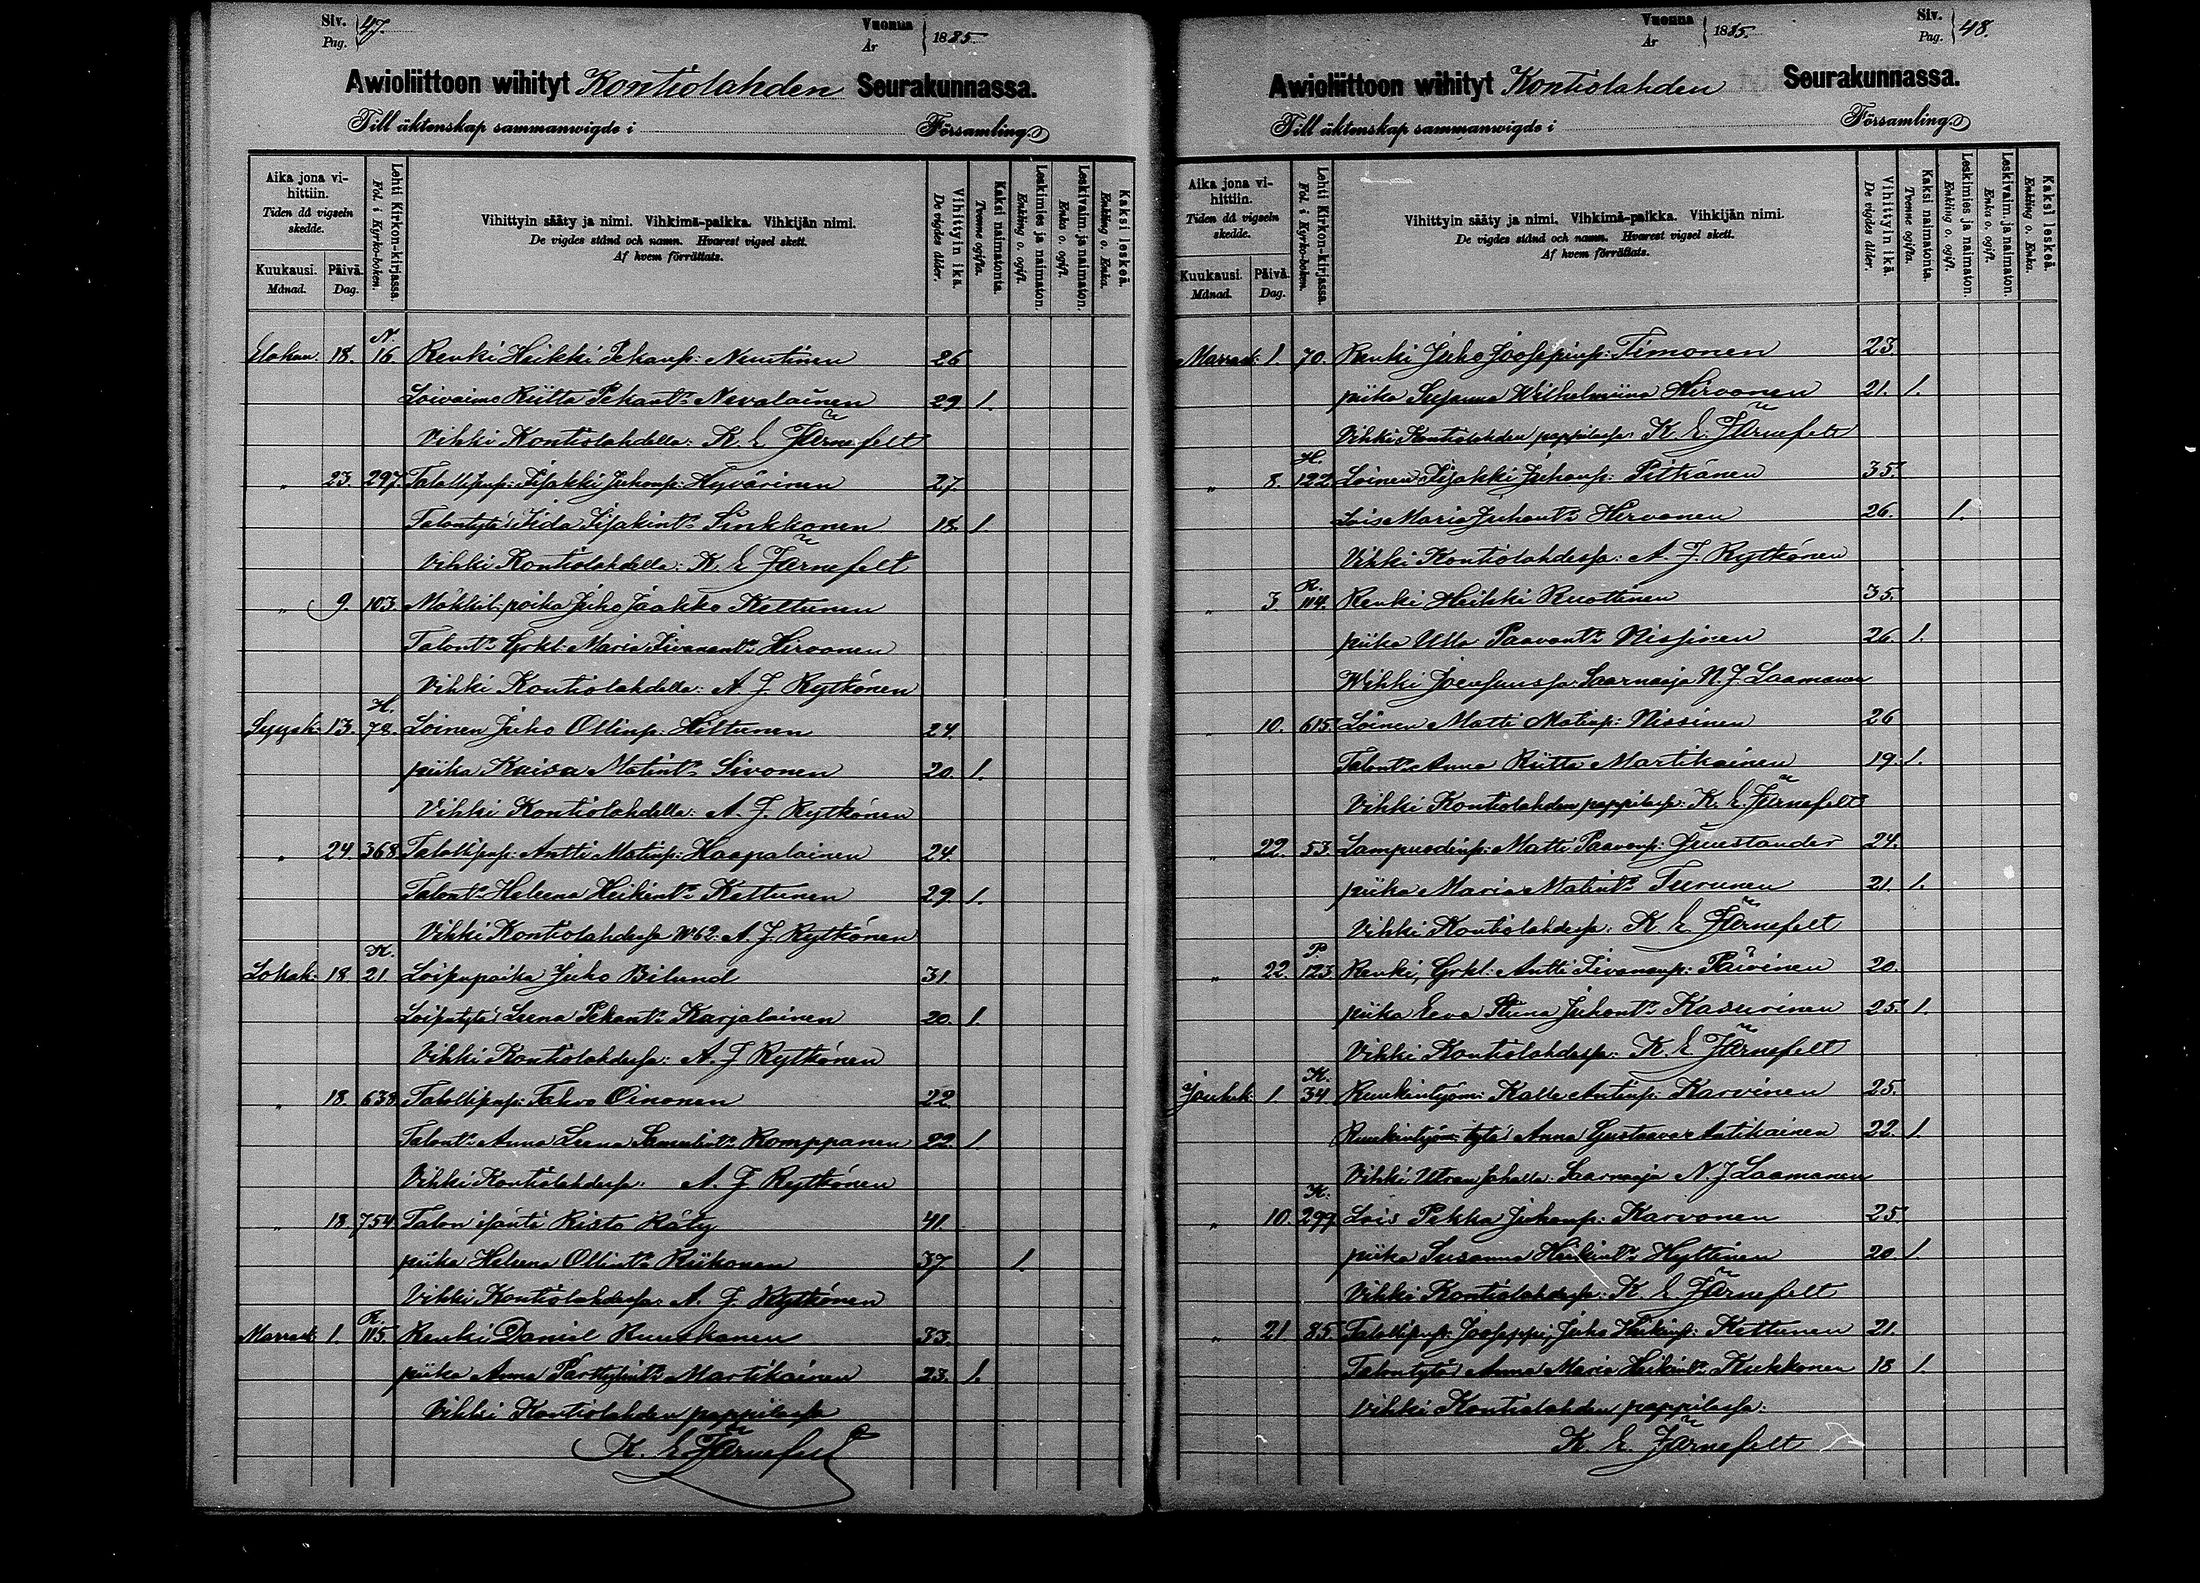 Siv. Pag. 47.
Vuonna År 1885.
Awioliittoon wihityt Kontiolahden Seurakunnassa.
Till äktenskap sammanwigde i Församling.
Aika jona vihittiin.
Tiden då vigseln skedde.
Kuukausi. Månad.
Päivä. Dag.
Lehti Kirkon-kirjassa.
Fol. i Kyrko-boken.
Vihittyin sääty ja nimi. Vihkimä-paikka. Vihkijän nimi.
De vigdes stånd och namn. Hvarest vigsel skett.
Af hvem förrättats.
Vihittyin ikä.
De vigdes ålder.
Kaksi naimatonta.
Tvenne ogifta.
Leskimies ja naimaton.
Enkling o. ogift.
Leskivaim. ja naimaton.
Enka o. ogift.
Kaksi leskeä.
Enkling o. Enka.
Elokuu 18. N. 16 Renki Heikki Pekanp: Nuutinen 26
Loivaimo Riitta Pekant: Nevalainen 29 1.
Vihki Kontiolahdella: K. E. Järnefelt
„ 23. 297. Talollisp: Iisakki Juhonp: Hyvärinen 27.
Talontytö Iida Iisakint: Sinkkonen 18. 1.
Vihki Kontiolahdella: K. E Järnefelt
„ 9. 103. Mökkil: poika Juho Jaakko Keltunen
Talont: Grkl. Maria Iivanant: Hirvonen
Vihki Kontiolahdella: A. J. Rytkönen
Syysk: 13. H. 78. Loinen Juho Ollinp: Hiltunen 24.
piika Kaisa Matint: Sivonen 20. 1.
Vihki Kontiolahdella: A. J. Rytkönen
„ 24. 368 Talollisp: Antti Matinp: Haapalainen 24.
Talont: Heleena Heikint: Kettunen 29 1.
Vihki Kontiolahdessa No 62: A. J. Rytkönen
Lokak: 18. K. 21. Loispoika Juho Bilund 31.
Loistytö Leena Pekant: Karjalainen 20. 1.
Vihki Kontiolahdessa: A. J Rytkönen
„ 18. 638. Talollisp: Tahvo Oinonen 22.
Talont: Anna Leena Samulint: Romppanen 22. 1.
Vihki Kontiolahdessa: A. J. Rytkönen
„ 18. 754. Talon isäntä Risto Räty 41.
piika Helena Ollint: Riikonen 37. 1.
Vihki Kontiolahdessa: A. J. Rytkönen
Marrask: 1. R. 115. Renki Daniel Ruuskanen 33.
piika Anna Parttylint: Martikainen 23. 1.
Vihki Kontiolahden pappilassa
K. E. Järnefelt
Vuonna År 1885.
Siv. Pag. 48.
Awioliittoon wihityt Kontiolahden Seurakunnassa.
Till äktenskap sammanwigde i Församling.
Aika jona vihittiin.
Tiden då vigseln skedde.
Kuukausi. Månad.
Päivä. Dag.
Lehti Kirkon-kirjassa.
Fol. i Kyrko-boken.
Vihittyin sääty ja nimi. Vihkimä-paikka. Vihkijän nimi.
De vigdes stånd och namn. Hvarest vigsel skett.
Af hvem förrättats.
Vihittyin ikä.
De vigdes ålder.
Kaksi naimatonta.
Tvenne ogifta.
Leskimies ja naimaton.
Enkling o. ogift.
Leskivaim. ja naimaton.
Enka o. ogift.
Kaksi leskeä.
Enkling o. Enka.
Marrask: 1. 70. Renki Juho Joosepinp: Timonen 23.
piika Susanna Wilhelmiina Hirvonen 21. 1.
Vihki Kontiolahden pappilassa K. E. Järnefelt
„ 8. H. 122. Loinen Iisakki Juhanp: Pitkänen 35.
Lois Maria Juhont: Hirvonen 26. 1.
Vihki Kontiolahdessa: A. J. Rytkönen
„ 3. R. 114. Renki Heikki Ruottinen 35.
piika Ulla Paavont: Nissinen 26. 1.
Wihki Joensuussa Saarnaaja N. J. Laamanen
„ 10. 615. Loinen Matti Matinp: Nissinen 26
Talont: Anna Riitta Martikainen 19. 1.
Vihki Kontiolahden pappilassa: K. E. Järnefelt
„ 22. 53. Matti Paavonp: 24.
piika Maria Matint: Turunen 21. 1.
Vihki Kontiolahdessa: K. E Järnefelt
„ 22. P. 123 Renki, Grkl: Antti Iivananp: Päivinen 20.
piika Eeva Stiina Juhont: Kasurinen 25. 1.
Vihki Kontiolahdessa: K. E Järnefelt
Jouluk: 1. K. 34. Ruukintyöm: Kalle Antinp: Karvinen 25.
Ruukintyöm: tytö Anna Gustaava Antikainen 22. 1.
Vihki Utran sahalla: Saarnaaja N. J Laamanen
„ 10. K. 297. Lois Pekka Juhanp: Karvonen 25
piika Susanna Heikint: Hyttinen 20. 1.
Vihki Kontiolahdessa: K. E Järnefelt
„ 21 85. Talollisp: Jooseppi, Juho Heikinp: Kettunen 21.
Talontytö Anna Maria Heikint: Kukkonen 18 1.
Vihki Kontiolahden pappilassa:
K. E. Järnefelt